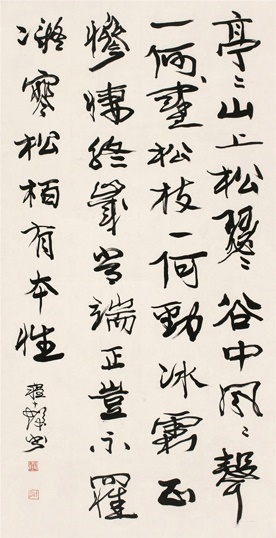 亭〻山上松瑟〻谷中风〻聲
一何盛松枝一何勁冰霜正
慘悽終歲常端正豈不罹
凝寒松柏有本性